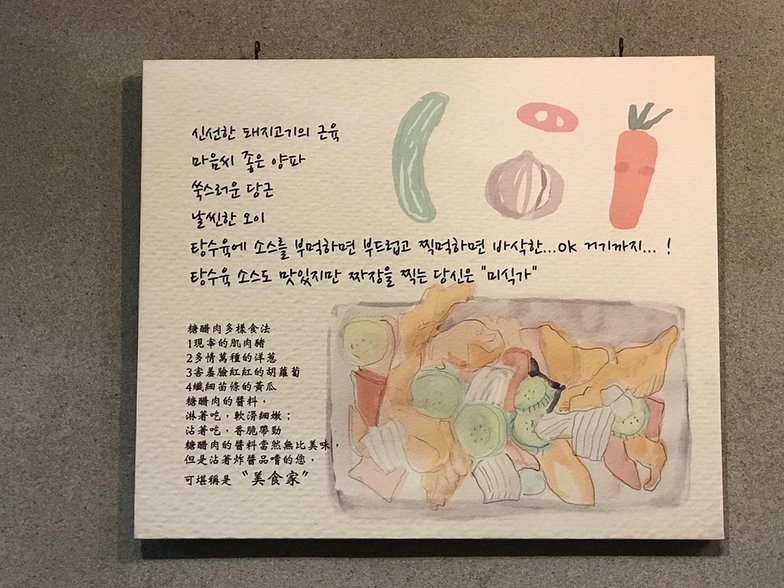 신선한 돼지고기의 근육
마음씨 좋은 양파
쑥스러운 당근
날씬한 오이
탕수육에 소스를 부먹하면 부드럽고 찍먹하면 바삭한...OK 거기까지... !
탕수육 소스도 맛있지만 짜장을 찍는 당신은 "미식가"
糖醋肉多樣食法
1現宰的肌肉豬
2多情萬種的洋蔥
3害羞臉紅紅的胡蘿蔔
4纖細苗條的黃瓜
糖醋肉的醬料，
淋著吃，軟滑細嫩；
沾著吃，香脆帶勁
糖醋肉的醬料當然無比美味，
但是沾著炸醬品嚐的您，
可堪稱是 〝美食家〞